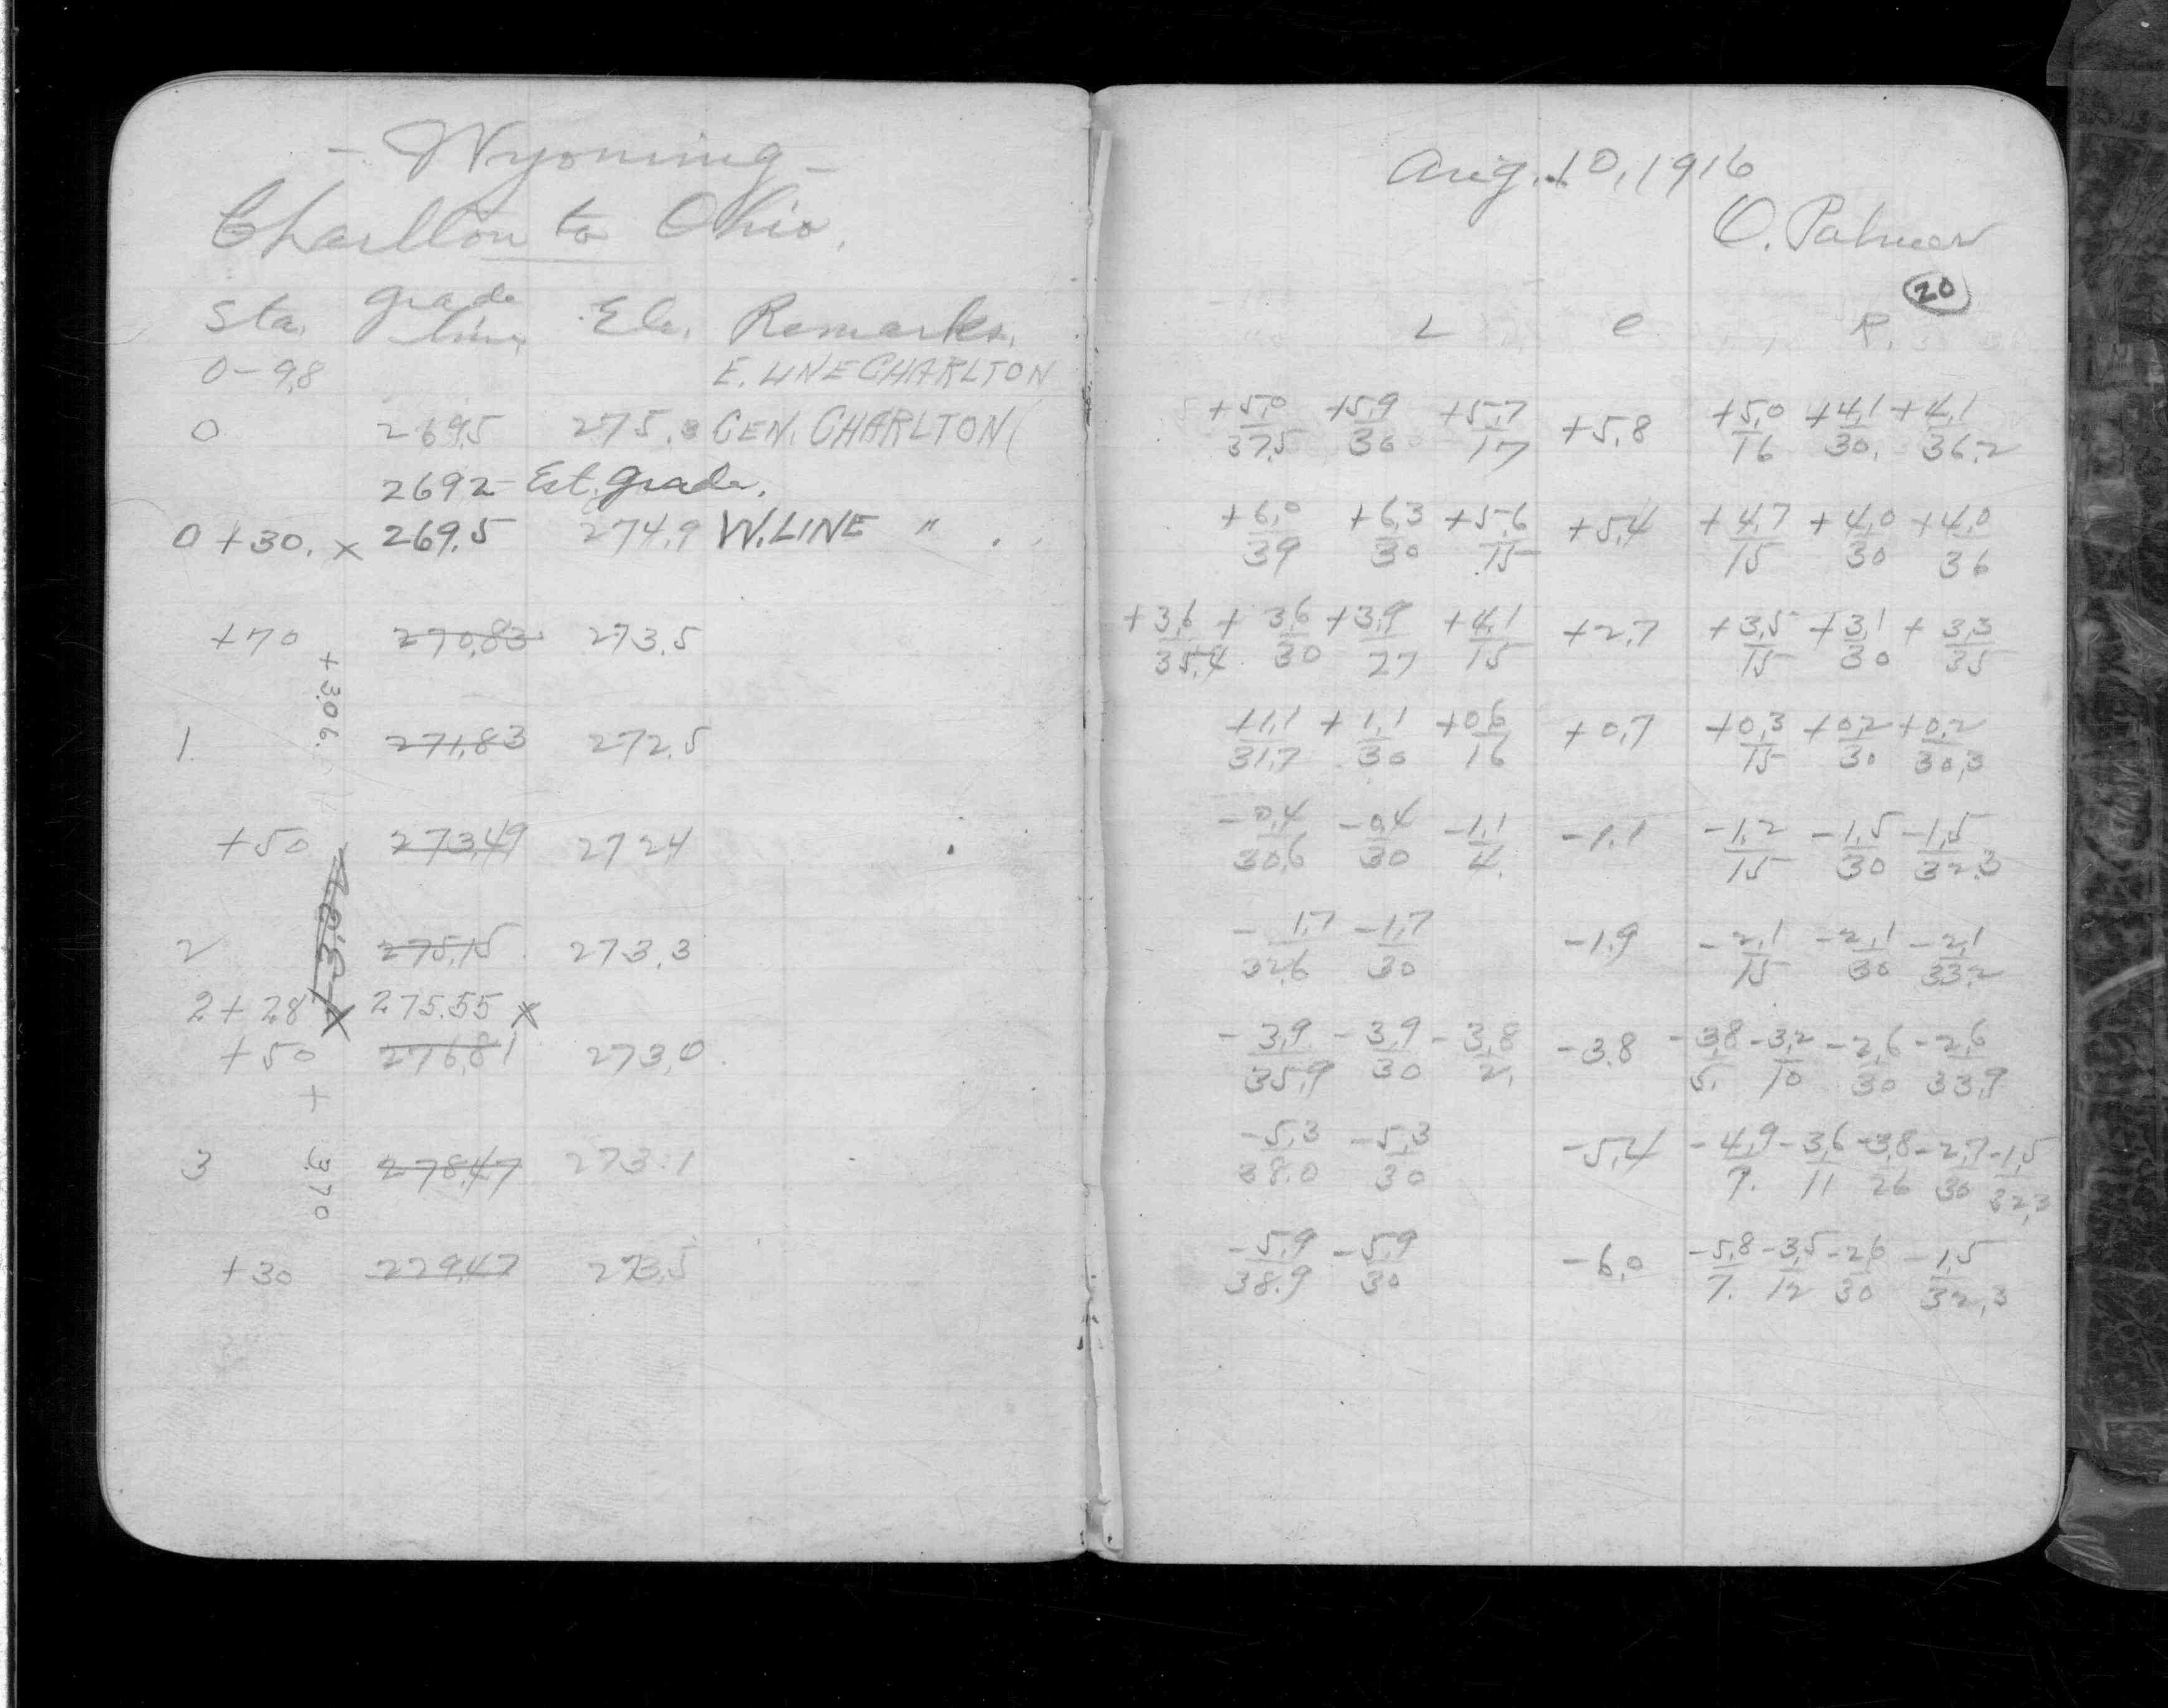 - Wyoming -
Charlton to Ohio.
Sta. grade line Ele. Remarks.
0-98 E. LINE CHARLTON
0 269.5 275.3 CEN. CHARLTON
2692 Est. grade.
0+30. x 269.5 274.9 W. LINE "
+70 270.83 273.5
+3.06
1 271.83 272.5
+50 273.49 272.4
2 275.15 273.3
2+28 x 275.55 x
+50 276.81 273.0
+3.70
3 278.47 273.1
+30 279.47 273.5
Aug. 10, 1916
O. Palmer
20
L C R.
+5.0/37.5 +5.9/30 +5.7/17 +5.8 +5.0/16 +4.1/30. +4.1/36.2
+6.0/39 +6.3/30 +5.6/15 +5.4 +4.7/15 +4.0/30 +4.0/36
+3.6/35.4 +3.6/30 +3.9/27 +4.1/15 +2.7 +3.5/15 +3.1/30 +3.3/35
+1.1/31.7 +1.1/30 +0.6/16 +0.7 +0.3/15 +0.2/30 +0.2/30.3
-0.4/30.6 -0.4/30 -1.1/4. -1.1 -1.2/15 -1.5/30 -1.5/32.3
-1.7/32.6 -1.7/30 -1.9 -2.1/15 -2.1/30 -2.1/33.2
-3.9/35.9 -3.9/30 -3.8/2. -3.8 -3.8/5. -3.2/10 -2.6/30 -2.6/33.9
-5.3/38.0 -5.3/30 -5.4 -4.9/7. -3.6/11 -3.8/26 -2.7/30 -1.5/32.3
-5.9/38.9 -5.9/30 -6.0 -5.8/7. -3.5/12 -2.6/30 -1.5/32.3